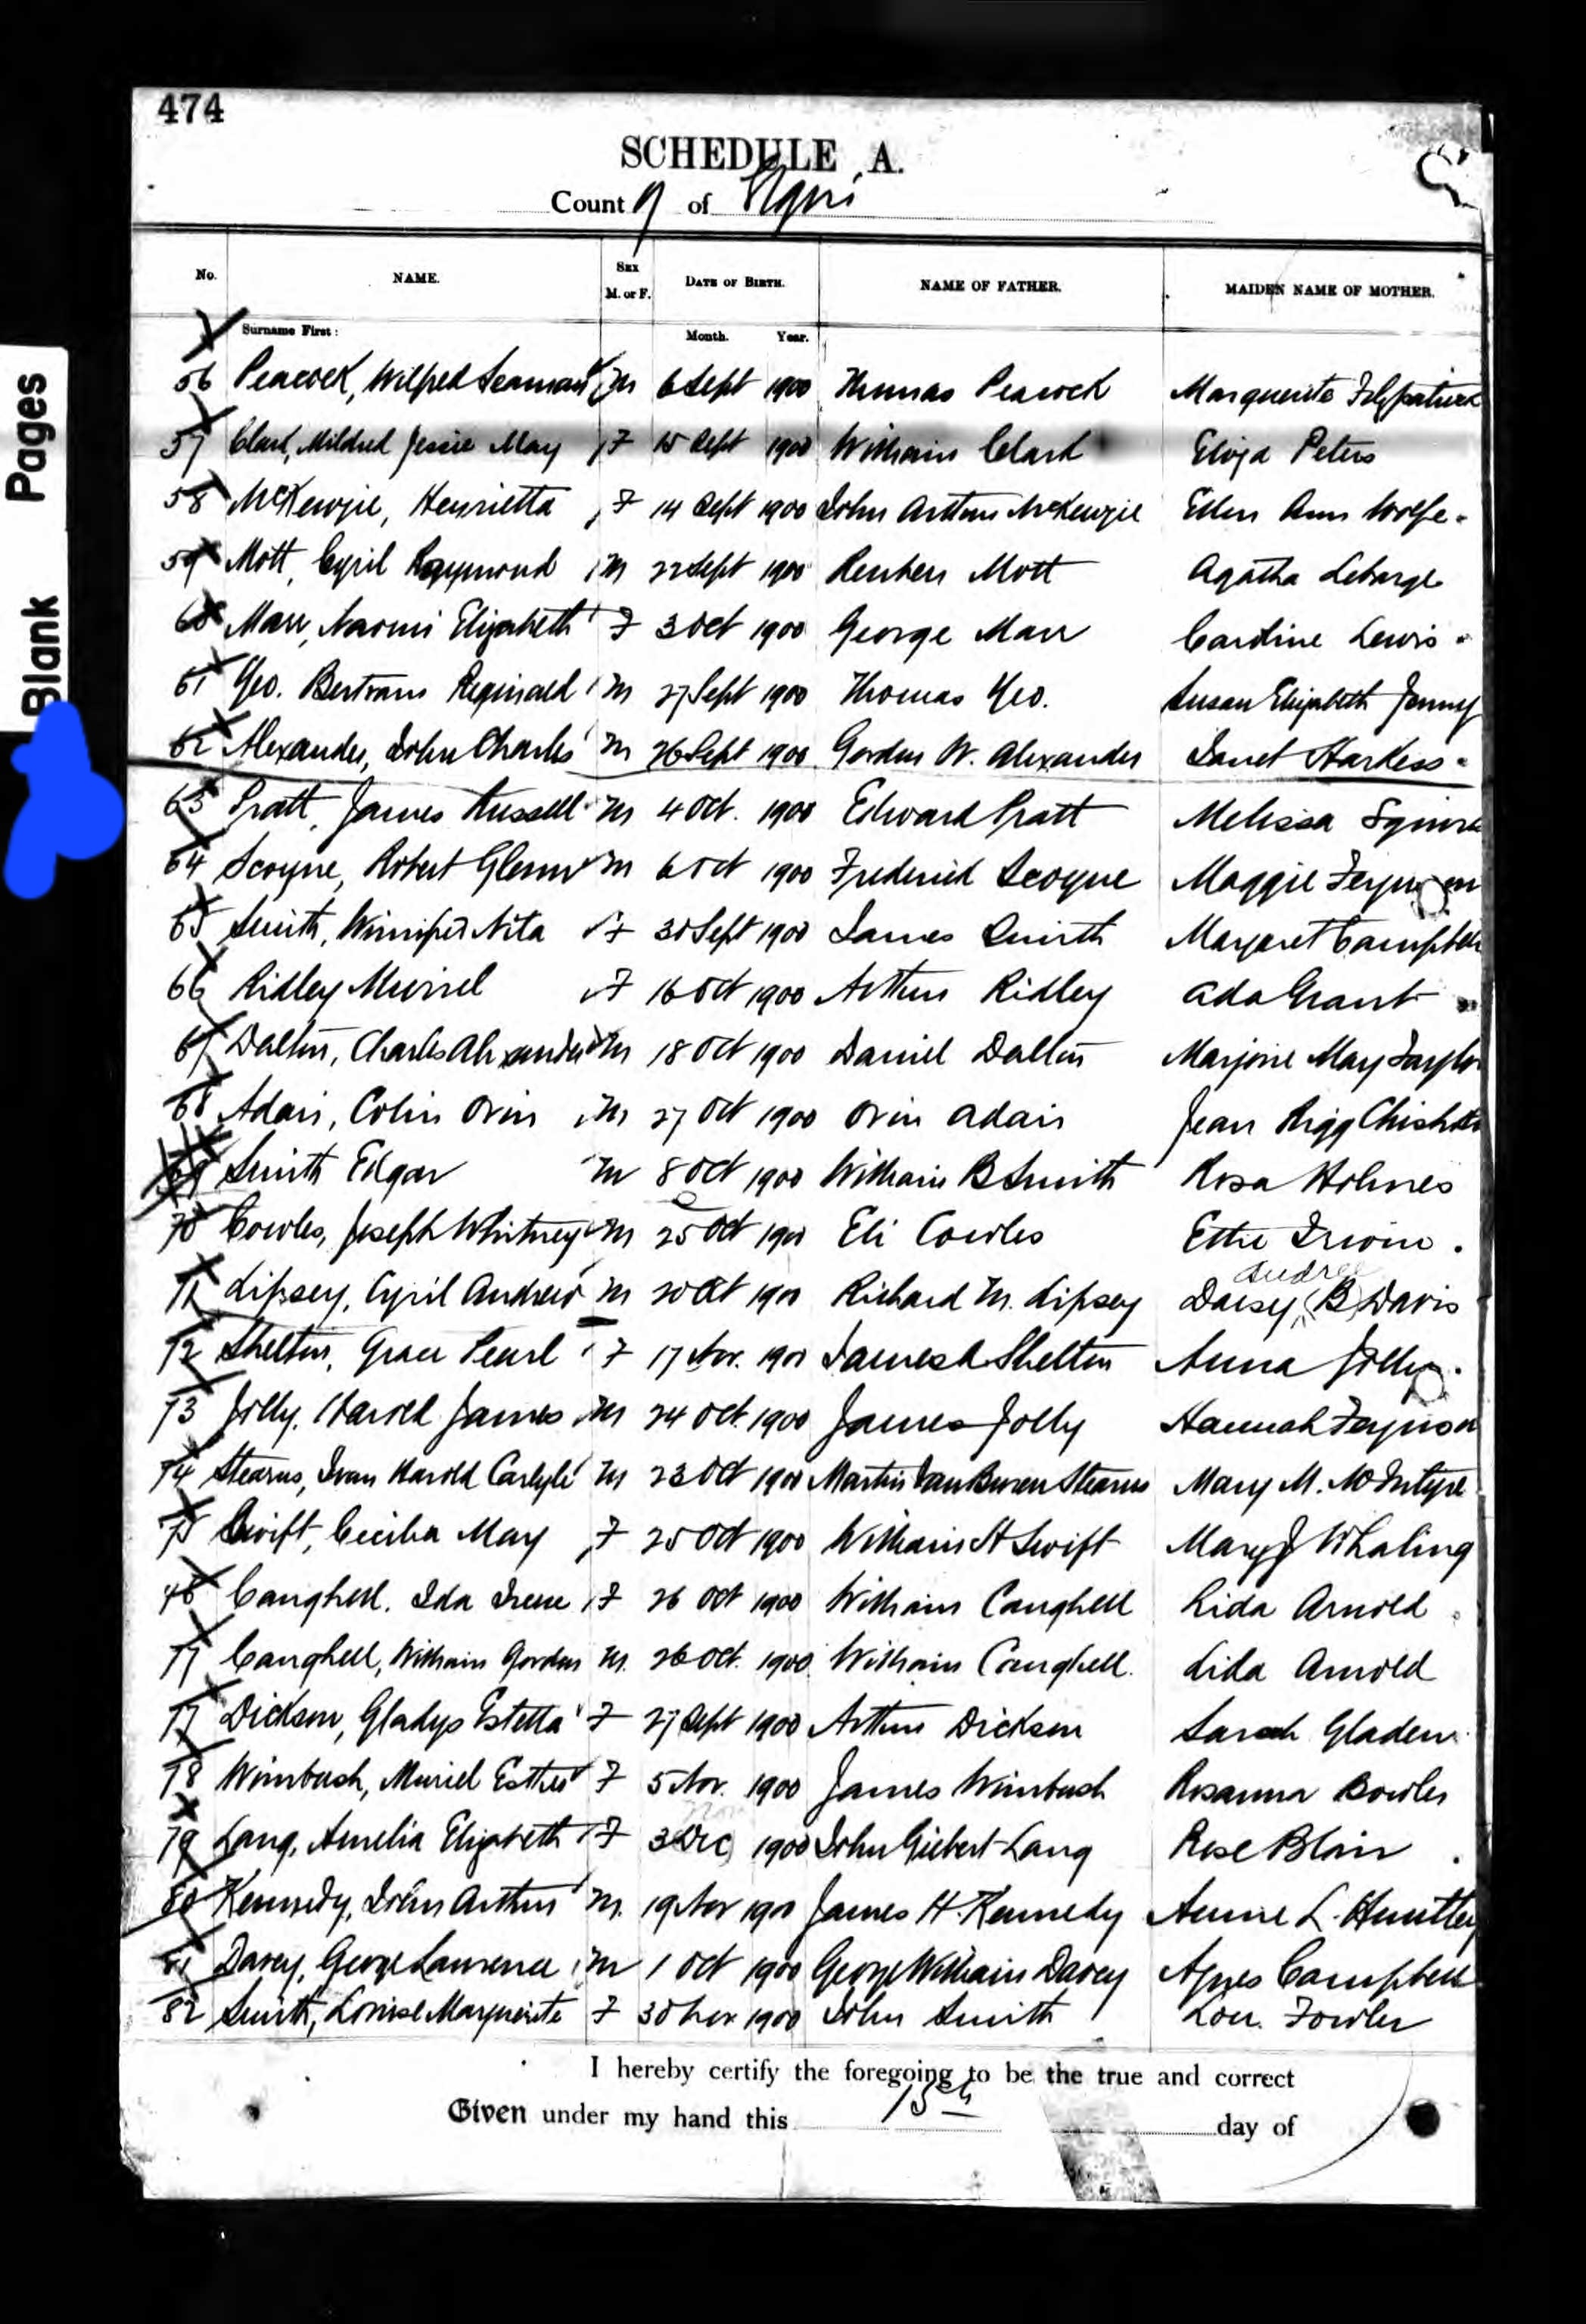 474
SCHEDULE A.
County of Elgin
No. NAME. Sex M. or F. Date of Birth. NAME OF FATHER. MAIDEN NAME OF MOTHER.
Surname First: Month. Year.
56 Peacock, Wilfred Seaman M 6 Sept 1900 Thomas Peacock Marguerite Fitzpatrick
57 Clark, Mildred Jessie May F 15 Sept 1900 William Clark Eliza Peters
58 McKenzie, Henrietta F 14 Sept 1900 John Arthur McKenzie Ellen Ann Wolfe
59 Mott, Cyril Raymond M 22 Sept 1900 Reuben Mott Agatha Lebarge
60 Marr, Naomi Elizabeth F 3 Oct 1900 George Marr Caroline Lewis
61 Yeo. Bertram Reginald M 27 Sept 1900 Thomas Yeo. Susan Elizabeth
62 Alexander, John Charles M 26 Sept 1900 Gordon W. Alexander Janet Harkess
63 Pratt, James Russell M 4 Oct. 1900 Edward Pratt Melissa Squire
64 Scoyne, Robert Glenn M 6 Oct 1900 Frederick Scoyne Maggie Ferguson
65 Smith, Winnifred Nita F 30 Sept 1900 James Smith Margaret Campbell
66 Ridley Murriel F 16 Oct 1900 Arthur Ridley Ada Grant
67 Dalton, Charles Alexander M 18 Oct 1900 Daniel Dalton Marjorie May Taylor
68 Adair, Colin Orin M 27 Oct 1900 Orin Adair Jean Rigg Chisholm
69 Smith Edgar M 8 Oct 1900 William B Smith Rosa Holmes
70 Cowles, Joseph Whitney M 25 Oct 1900 Eli Cowles Ettie Irwin.
Audrey
71 Lipsey, Cyril Andrew M 20 Oct 1900 Richard M. Lipsey Daisy (B) Davis
72 Shelton, Grace Pearl F 17 Nov. 1900 James A Shelton Anna Jolly.
73 Jolly, Harold James M 24 Oct. 1900 James Jolly Hannah Ferguson
74 Stearns, Ivan Harold Carlyle M 23 Oct 1900 Martin Van Buren Stearns Mary M. McIntyre
75 Swift, Cecilia May F 25 Oct 1900 William H Swift Mary J Whaling
76 Caughell. Ida Irene F 26 Oct 1900 William Caughell Lida Arnold
77 Caughell, William Gordon M. 26 Oct. 1900 William Caughell. Lida Arnold
77 Dickson, Gladys Estella F 27 Sept 1900 Arthur Dickson Sarah Gladen
78 Wimbush, Muriel Esther F 5 Nov. 1900 James Wimbush Rosanna Bowles
Nov
79 Lang, Amelia Elizabeth F 3 (Dec) 1900 John Giebert Lang Rose Blair
80 Kennedy, John Arthur M. 19 Nov 1900 James H. Kennedy Annie L. Huntley
81 Davey, George Lawrence M 1 Oct 1900 George William Davey Agnes Campbell
82 Smith, Louise Marguerite F 30 Nov 1900 John Smith Lou. Fowler
I hereby certify the foregoing to be the true and correct
Given under my hand this 15th day of
Blank Pages